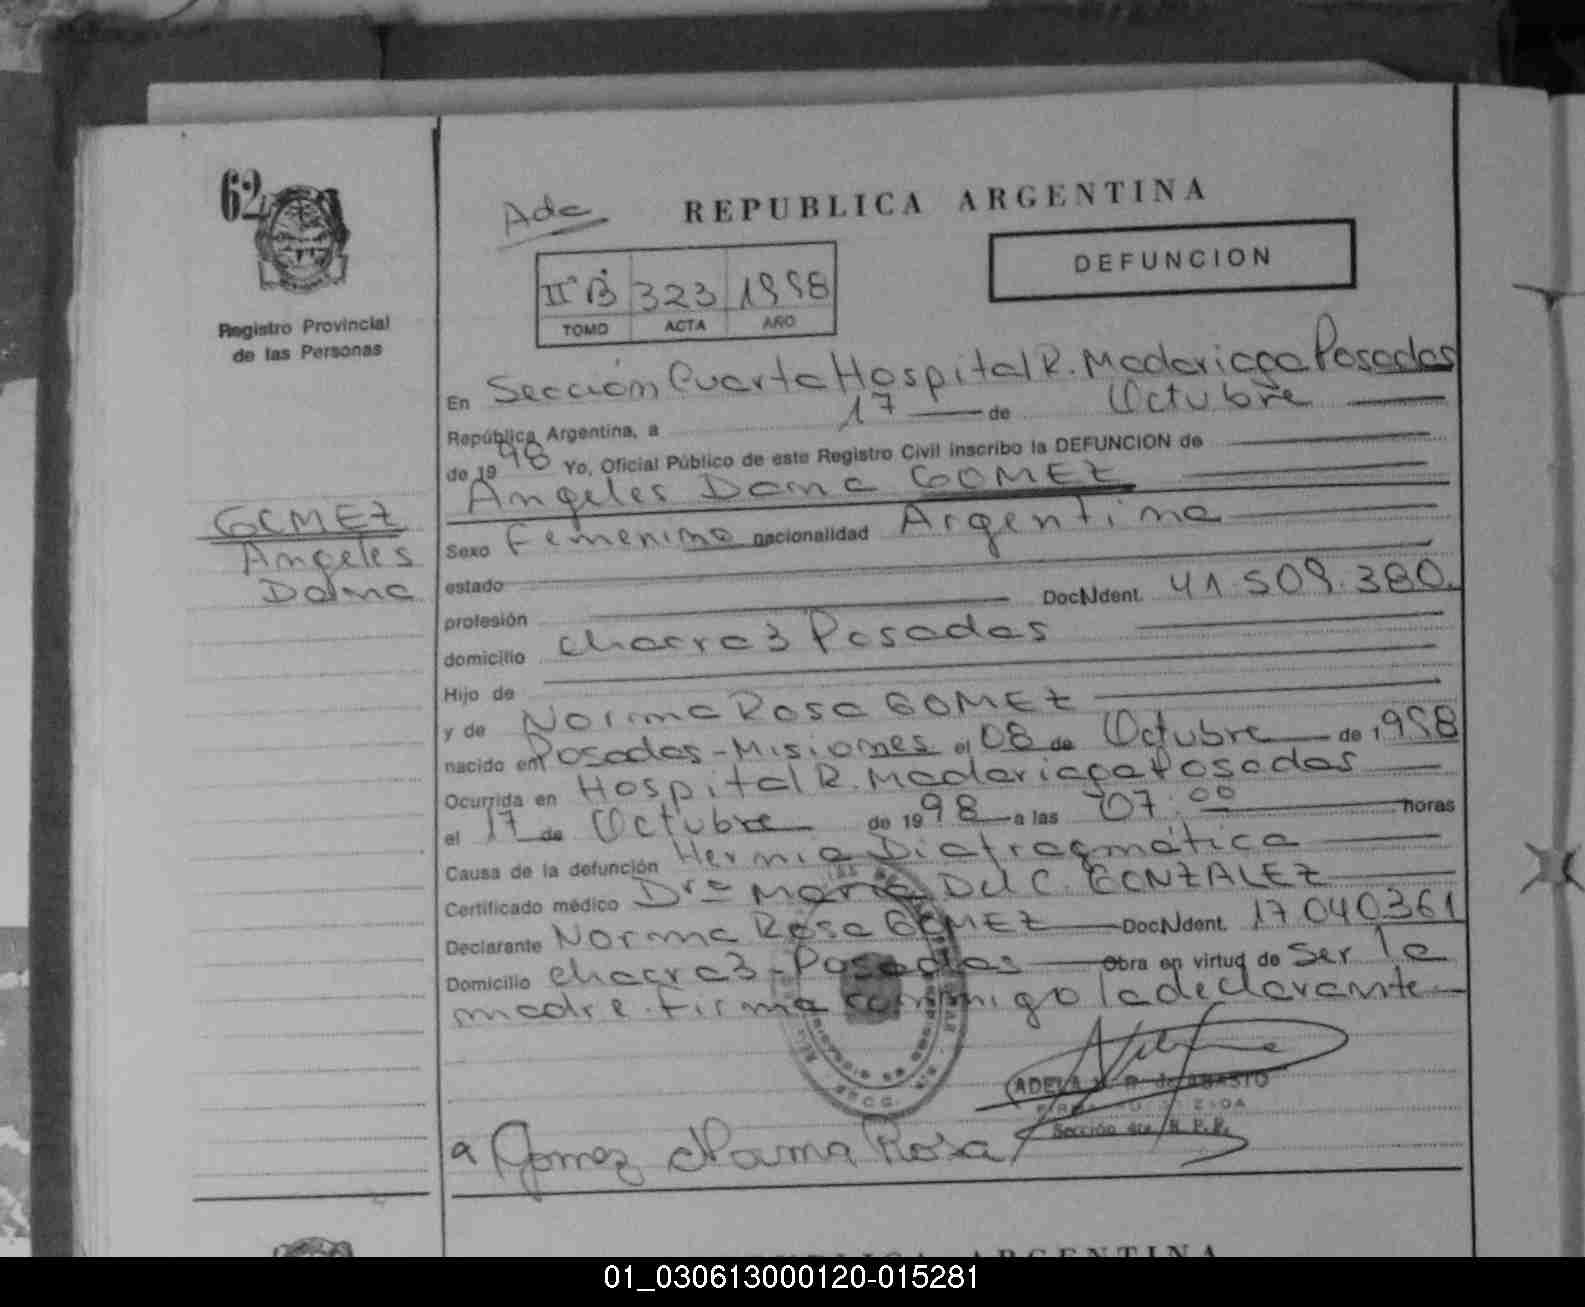 62
Registro Provincial
de las Personas
GOMEZ
Angeles
Daina
Ade
REPUBLICA ARGENTINA
DEFUNCION
IIº B 323 1998
TOMO ACTA AÑO
En Sección Cuarta Hospital R. Madariaga Posadas
República Argentina, a 17 de Octubre
de 1998 Yo, Oficial Público de este Registro Civil inscribo la DEFUNCION de
Angeles Daina GOMEZ
Sexo Femenino nacionalidad Argentina
estado
profesión DocNdent. 41.509.380.
domicilio chacra 3 Posadas
Hijo de
y de Norma Rosa GOMEZ
nacido en Posadas - Misiones el 08 de Octubre de 1998
Ocurrida en Hospital R. Madariaga Posadas
el 17 de Octubre de 1998 a las 07:00 horas
Causa de la defunción Hernia Diafragmática
Certificado médico Dra María Del C. GONZALEZ
Declarante Norma Rosa GOMEZ DocNdent. 17.040.361
Domicilio chacra 3 - Posadas Obra en virtud de Ser la
madre. firma conmigo la declarante
ADELA
Sección 4ta R. P. P.
a Gomez Norma Rosa
REPUBLICA ARGENTINA
01_030613000120-015281